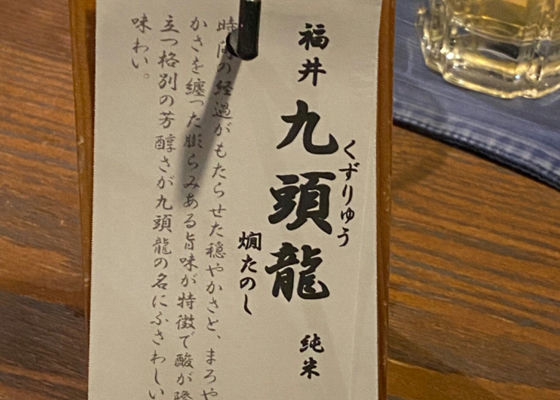 福井
九頭龍
くずりゅう
純米
燗たのし
時間の経過がもたらせた穏やかさと、まろや
かさを纏った膨らみある旨味が特徴で酸が
立つ格別の芳醇さが九頭龍の名にふさわしい
味わい。